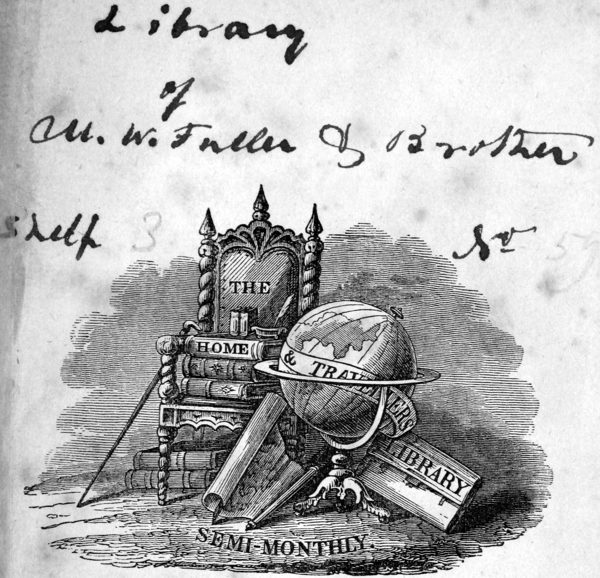 Library
of
M. W. Fuller & Brother
Shelf 3 No 59
THE
HOME
& TRAVELLERS
LIBRARY
SEMI-MONTHLY.